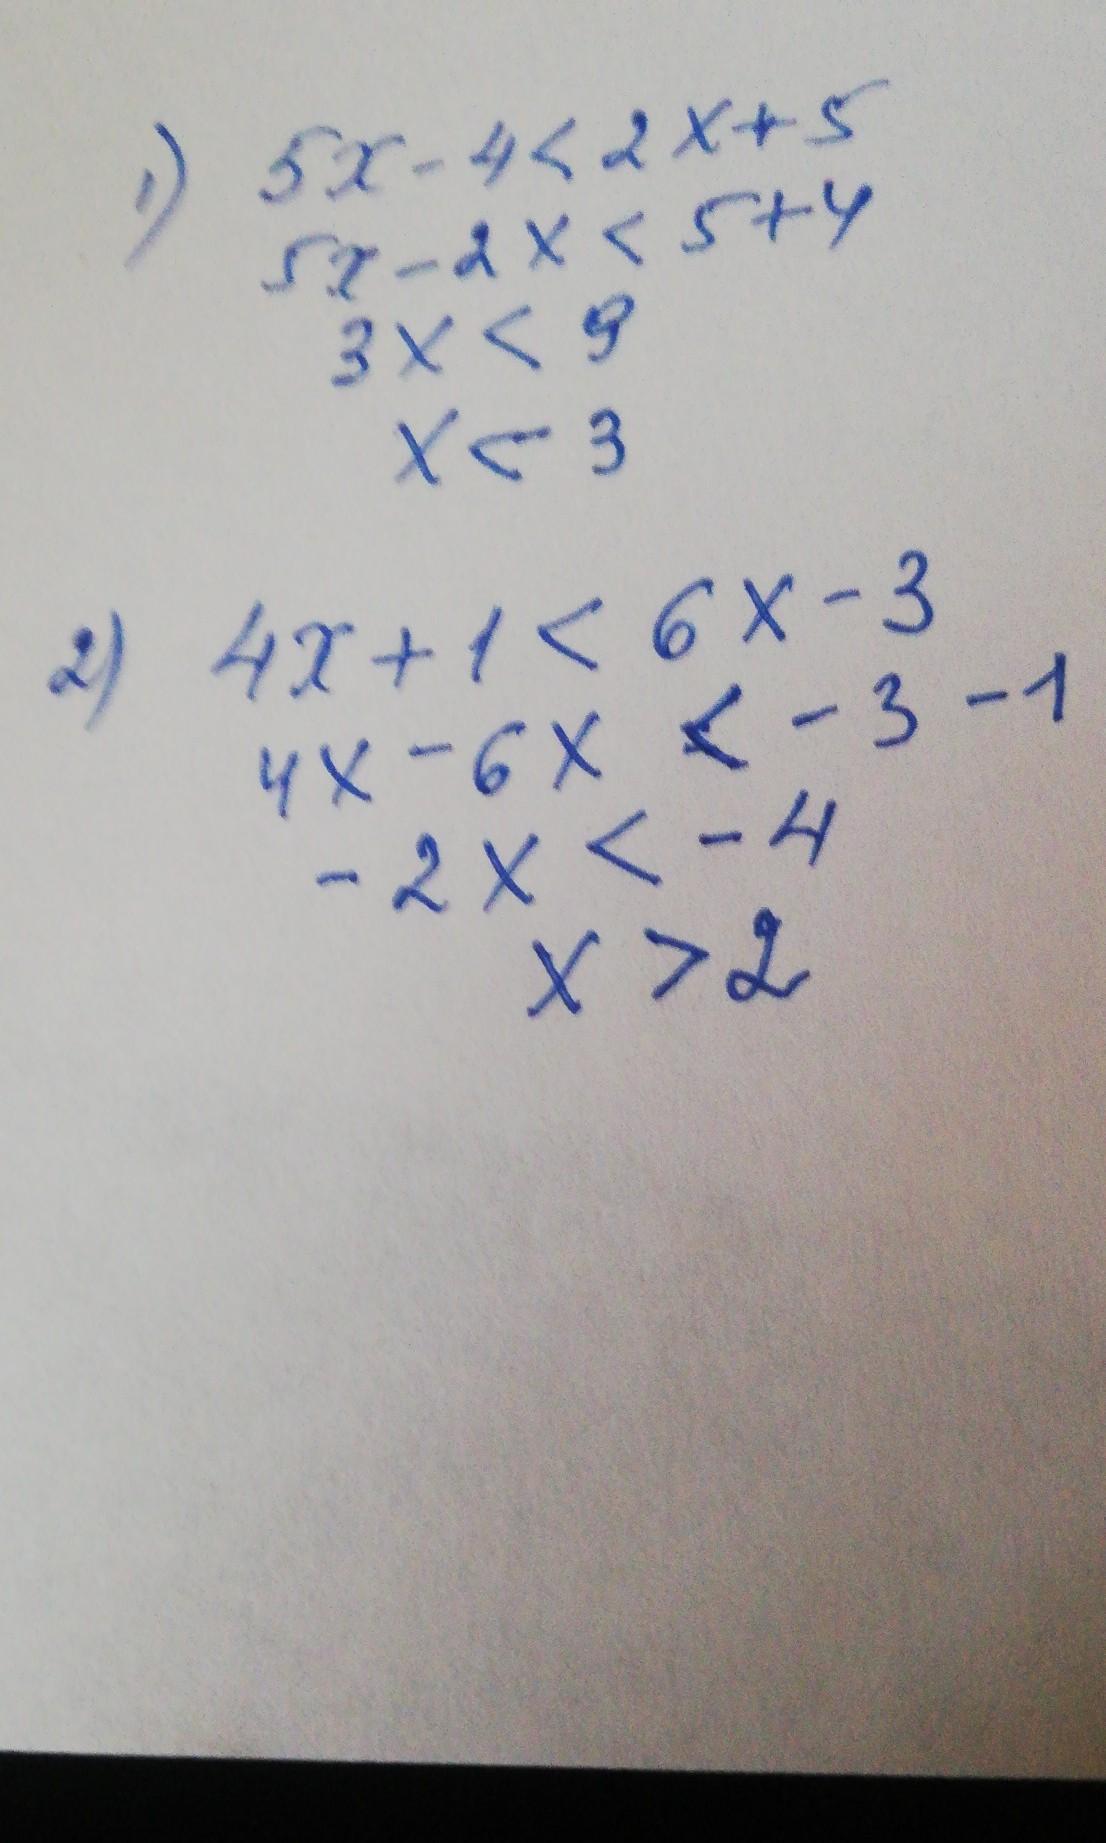 1) 5x - 4 < 2x + 5
5x - 2x < 5 + 4
3x < 9
x < 3
2) 4x + 1 < 6x - 3
4x - 6x < - 3 - 1
- 2x < - 4
x > 2